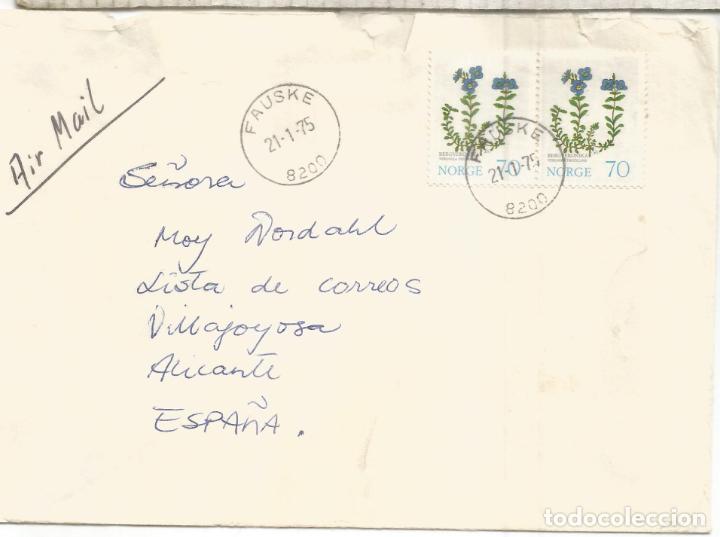 Air Mail
FAUSKE
21-1-75
8200
BERGVERONIKA
NORGE 70
BERGVERONIKA
NORGE 70
FAUSKE
21-1-75
8200
Señora
Moy Nordahl
Lista de correos
Villajoyosa
Alicante
ESPAÑA.
todocoleccion